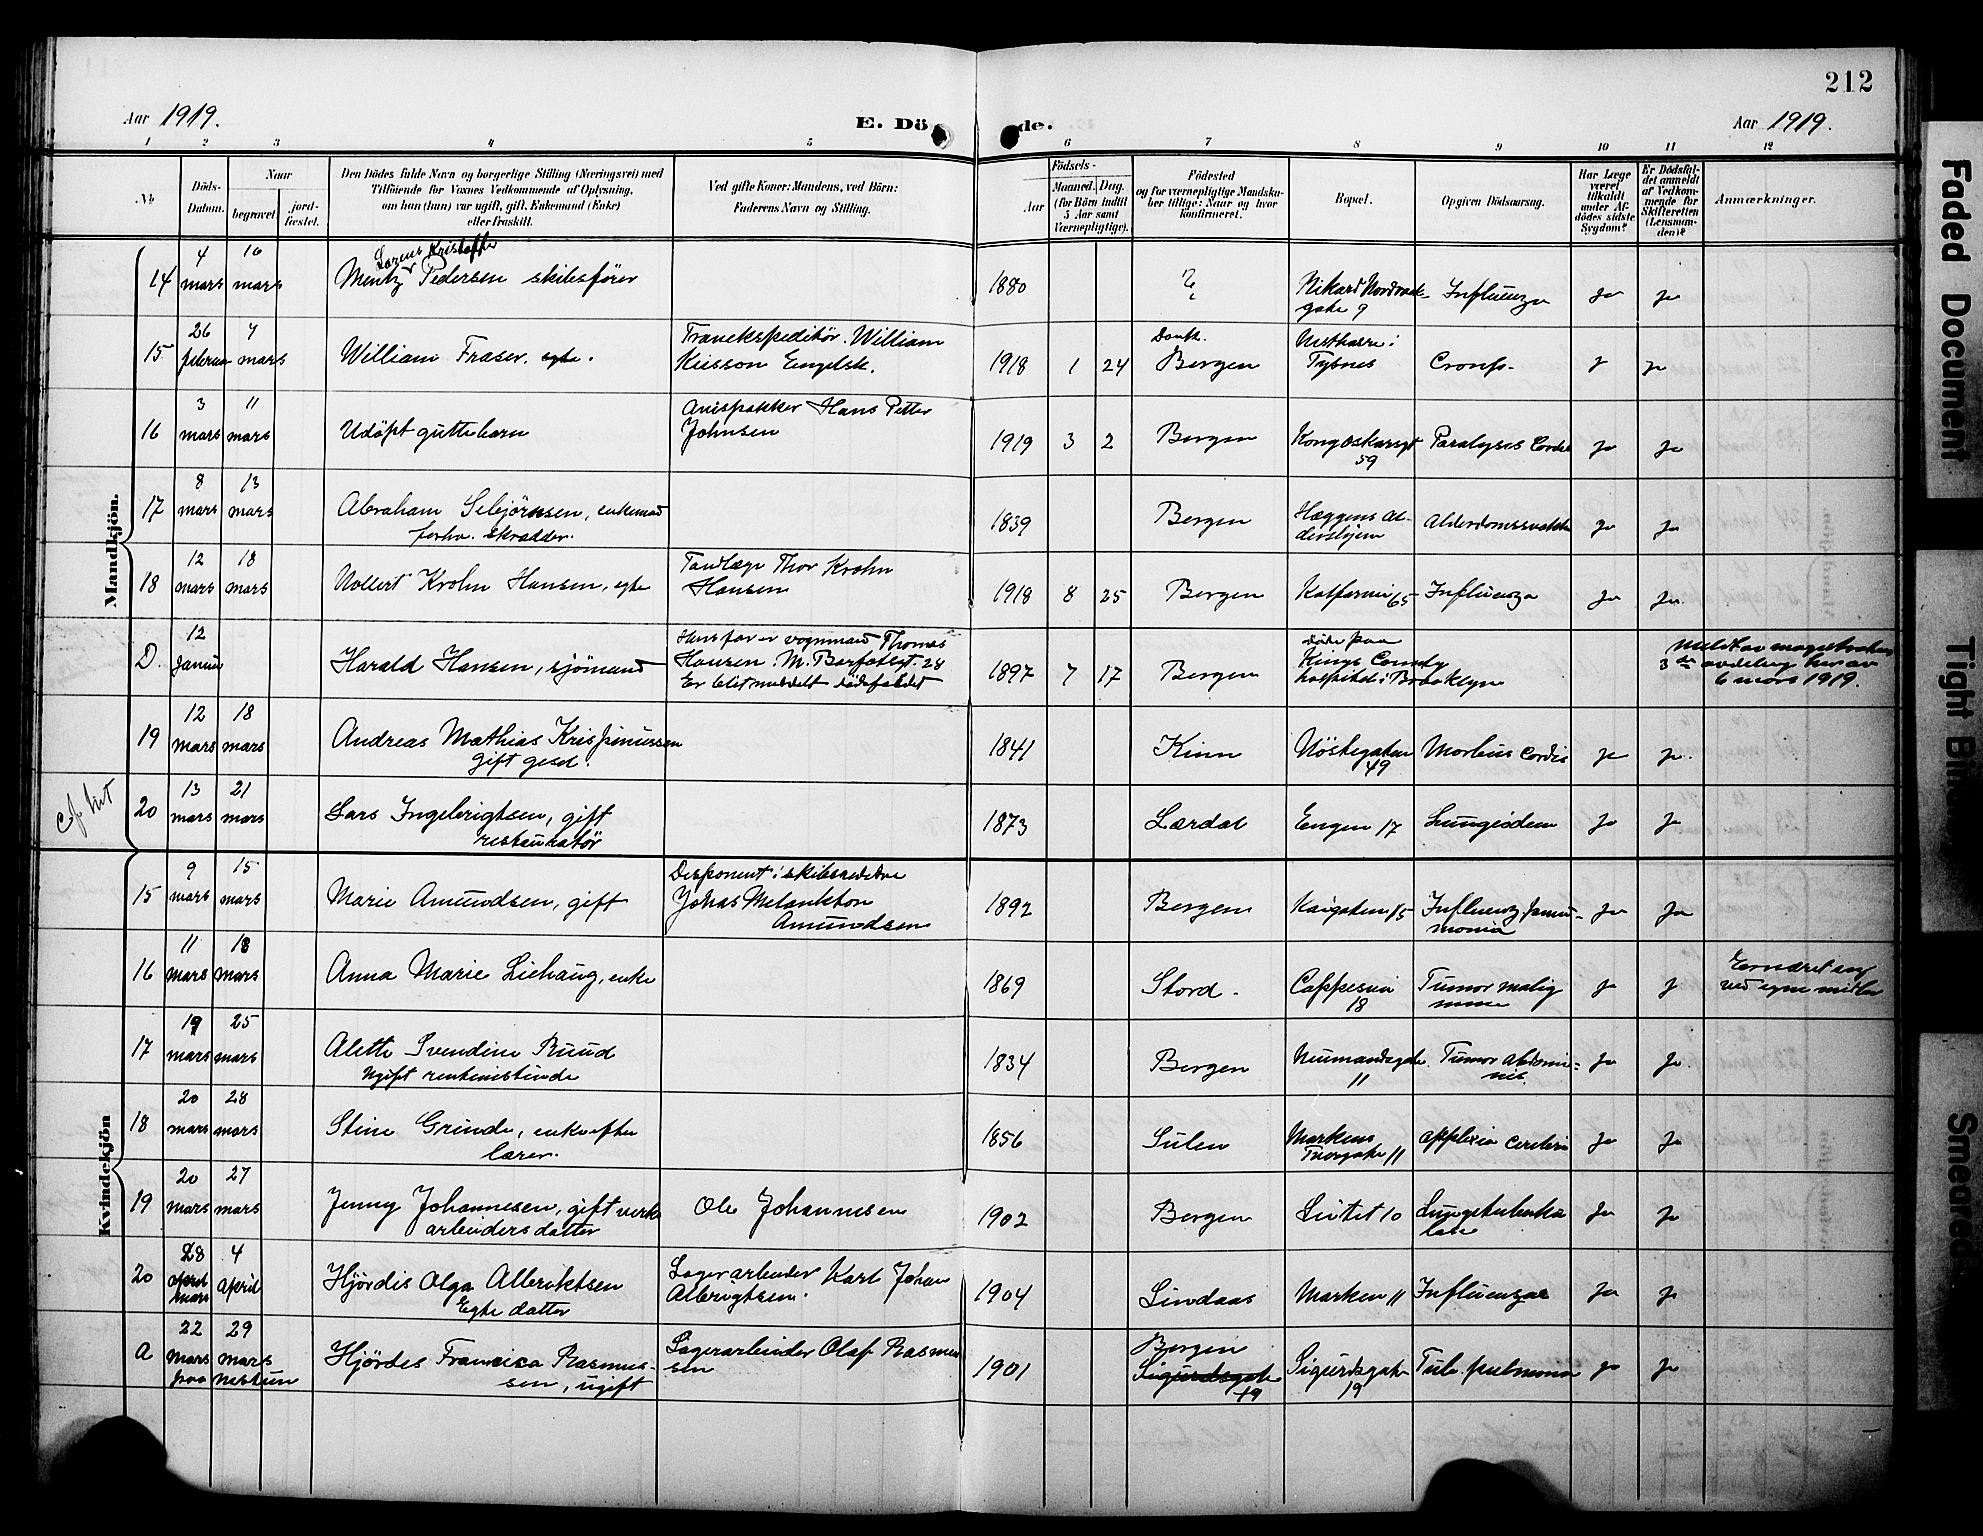 212
Aar 1919. E. Dö de. Aar 1919.
1 2 3 4 5 6 7 8 9 10 11 12
No
Döds-Datum.
Naar
begravet.
jord-fæstet.
Den Dödes fulde Navn og borgerlige Stilling (Næringsvei) med
Tilföiende for Voxnes Vedkommende af Oplysning,
om han (hun) var ugift, gift, Enkemand (Enke)
eller fraskilt.
Ved gifte Koner: Mandens, ved Börn:
Faderens Navn og Stilling.
Födsels-
Aar
Maaned. Dag.
(for Börn indtil
5 Aar samt
Værnepligtige).
Födested
og for værnepligtige Mandsku-
ber tillige: Naar og hvor
konfirmeret.
Bopæl.
Opgiven Dödsaarsag.
Har Læge
været
tilkaldt
under Af-
dödes sidste
Sygdom?
Er Dödsfal-
det anmeldt
af Vedkom-
mende for
Skifteretten
(Lensman-
den)?
Anmærkninger.
Mandkjön.
14 4 mars 10 mars
Lorens Kristoffer
Mentz Pedersen skibsförer
1880 ? Rikard Nordraaks
gate 9 Influenza ja ja
15 26 februar 7 mars William Fraser. egte.
Tranekspeditör. William
Kiesson Engelsk.
1918 1 24 Döpt. Bergen
Tysnes Croup. J ja
16 3 mars 11 mars Udöpt guttebarn
Avispakker Hans Petter
Johnsen
1919 3 2 Bergen Kong Oskarsgt
59 Paralysis Cordis Ja Ja
17 8 mars 13 mars Abraham Sebjörnsen, enkemand
forhv. skrædder.
1839 Bergen Hæggens Al-
dershjem Alderdomssvakhet Ja Ja
18 12 mars 18 mars Vollert Krohn Hansen, egte
Tandlæge Thor Krohn
Hansen
1918 8 25 Bergen Kalfarvei 65 Influenza Ja Ja.
D. 12 Januar Harald Hansen, sjömand
Hans far er vognmand Thomas
Hansen. M. Barfotsgt. 28
Er blit meddelt dödsfaldet
1897 7 17 Bergen döde paa
Kings County
hospital i Brooklyn
Meldt av magistratens
3die avdeling her av
6 mars 1919.
19 12 mars 18 mars Andreas Mathias Krispinussen
gift gesel.
1841 Kinn Nöstegaten
49 Morbus Cordis Ja Ja.
20 13 mars 21 mars Lars Ingebrigtsen, gift
restauratör
1873 Lærdal Engen 17 Lungeödem Ja Ja
Kvindekjön
15 9 mars 15 mars Marie Amundsen, gift
Disponent i skibsrederi
Johas Melankton
Amundsen
1892 Bergen Kaigaten 15 Influenza pneu-
monia Ja Ja
16 11 mars 18 mars Anna Marie Liehaug, enke
1869 Stord. Cappesvei
18 Tumor malig
Ja J Ernæret sig
ved egne midler
17 19 mars 25 mars Alette Svendine Ruud
Ugift rentenistinde
1834 Bergen Neumandsgate
11 Tumor Abdomi-
nis. Ja Ja.
18 20 mars 28 mars Stine Grinde, enke efter
lærer.
1856 Sulen Markens
Tvergate 11 Applexia Cerebri Ja Ja
19 20 mars 27 mars Jenny Johannesen, gift verks
arbeiders datter
Ole Johannesen
1902 Bergen Lövtet 10 Lungetuberku
lose Ja Ja
20 28 april mars 4 April Hjördis Olga Albriktsen
Egte datter
Lagerarbeider Karl Johan
Albrigtsen.
1904 Lindaas Marken 11 Influenzae Ja Ja
A 22 mars 29 mars
paa Nestun
Hjördis Francisca Rasmus-
sen, ugift
Lagerarbeider Olaf Rasmus
sen
1901 Bergen
Sigurdsgate
19 Sigurdsgate
19 Tub. pulmonum Ja Ja
Faded Document
Tight Bi
Smeared